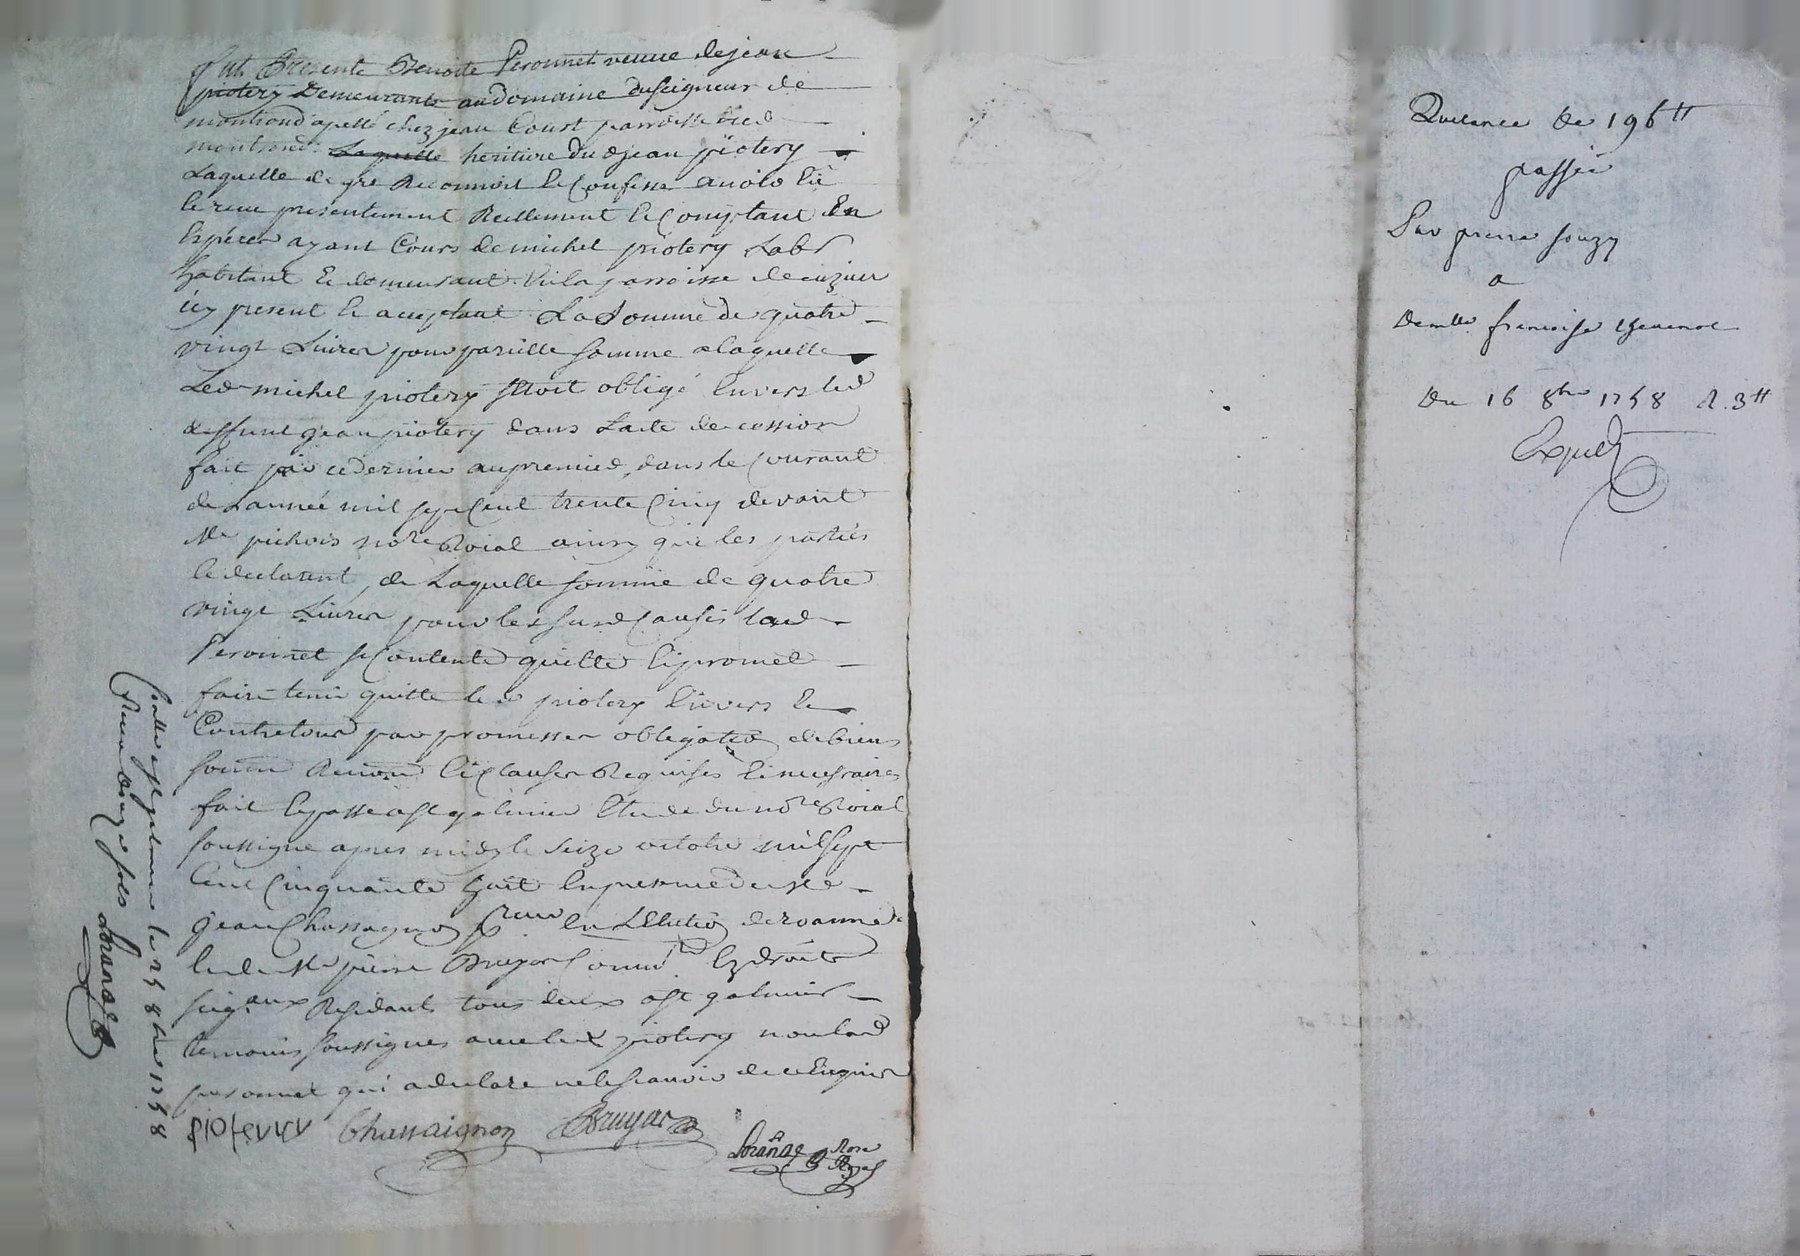 fut Presente Benoite Peronnet veuve de jean
piotery Demeurante au domaine du seigneur de
montrond apellé chez jean Coust parroisse dud
montrond. Laquelle heritiere dud jean piotery
Laquelle de gré Reconnoit et Confesse avoir eü
et receu presentement Reellement et Comptant En
Espèces ayant Cours de michel piotery Labr
habitant et demeurant en la parroisse de cuzieu
icy present et acceptant La Somme de quatre
vingt Livres pour pareille somme a laquelle
Led michel piotery Etoit obligé Envers led
deffunt jean piotery dans Lacte de cession
fait par ce dernier au premier, dans le Courant
de Lannée mil sept Cent trente Cinq devant
Me pichois nore Roial ainsy que les parties
le declarent, de Laquelle somme de quatre
vingt Livres pour les susd Causes lad
Peronnet se Contente quitte et promet
faire tenir quitte led piotery Envers et
Contre tous par promesses obligation de biens
soumn Renonn et Clauses Requises et necessaires
fait et passé a st galmier Etude du nore Roial
soussigné apres midy le Seize octobre mil sept
Cent Cinquante huit En presence de Me
jean Chassagnon en L'Election de roanne
et de Me pierre Bruyas Commis Ez droits
seigaux Residants tous deux a st galmier
temoins soussignes avec led piotery non lad
peronnet qui a declaré ne le scavoir de ce Enquise
piotery Chassaignon Bruyas
Lorange Nore Royal
Contlle a st galmier le 25 8bre 1758
Receu douze sols Lorange
Quittance de 196tt
passée
Par pierre souzy
a
demlle francoise thevenot
Du 16 8bre 1758 R. 3tt
Expedé